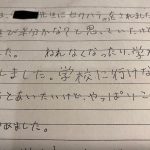 は、先生にセクハラをされました
は半分かな?と思っていたけど
した。 ねれなくなったり、学
しました。学校に行けな
うとあいたいけど、やっぱりこ
めました。